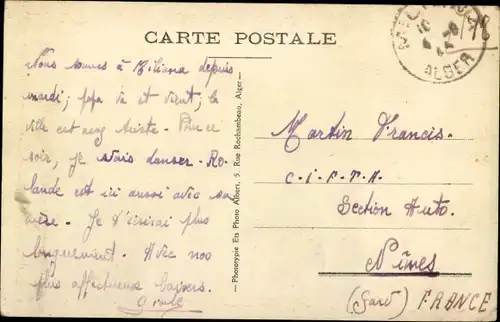 CARTE POSTALE
Nous sommes à Miliana depuis
mardi; papa va et vient; la
ville est assez triste. Pour ce
soir, je vais danser. Ro-
lande est ici aussi avec sa
mère. Je t'écrirai plus
longuement. Avec nos
plus affectueux baisers.
Phototypie Ets Photo Albert, 5, Rue Rochambeau, Alger
ALGER
Martin Francis.
C.I.F.T.A.
Section Auto.
Nîmes
(Gard) FRANCE